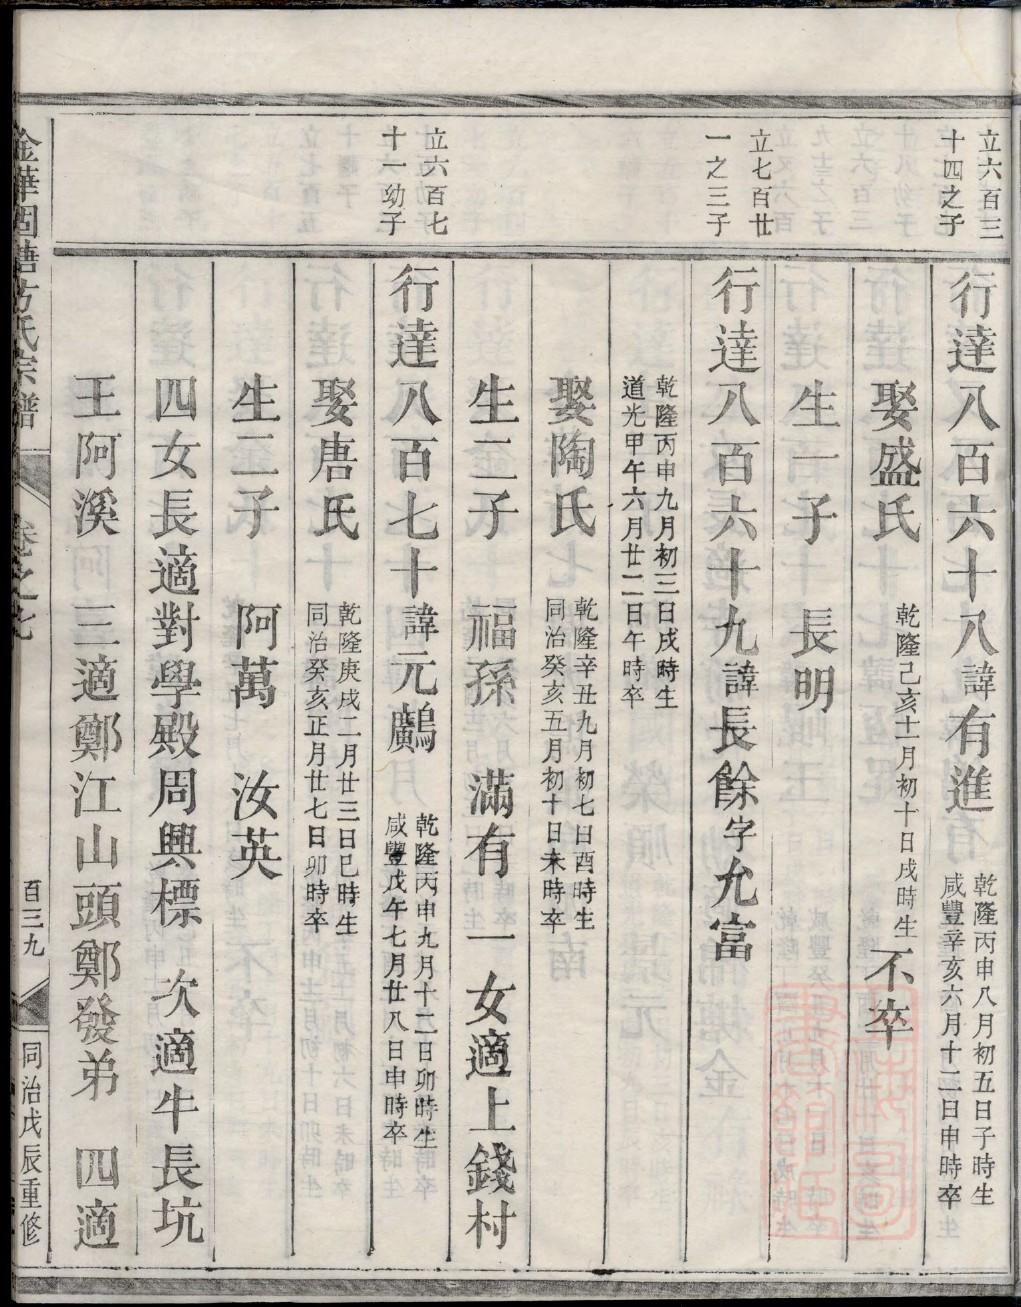 立六百三
十四之子
行達八百六十八諱有進
乾隆丙申八月初五日子時生
咸豐辛亥六月十二日申時卒
娶盛氏
乾隆己亥十一月初十日戌時生
不卒
生一子 長明
立七百廿
一之三子
行達八百六十九諱長餘字允富
乾隆丙申九月初三日戌時生
道光甲午六月廿二日午時卒
娶陶氏
乾隆辛丑九月初七日酉時生
同治癸亥五月初十日未時卒
生二子 福孫 滿有 一女適上錢村
立六百七
十一幼子
行達八百七十諱元鷫
乾隆丙申九月十二日卯時生
咸豐戊午七月廿八日申時卒
娶唐氏
乾隆庚戌二月廿三日巳時生
同治癸亥正月廿七日卯時卒
生二子 阿萬 汝英
四女長適對學殿周興標 次適牛長坑
王阿溪 三適鄭江山頭鄭發弟 四適
金華固塘方氏宗譜 卷之七 百三九 同治戊辰重修